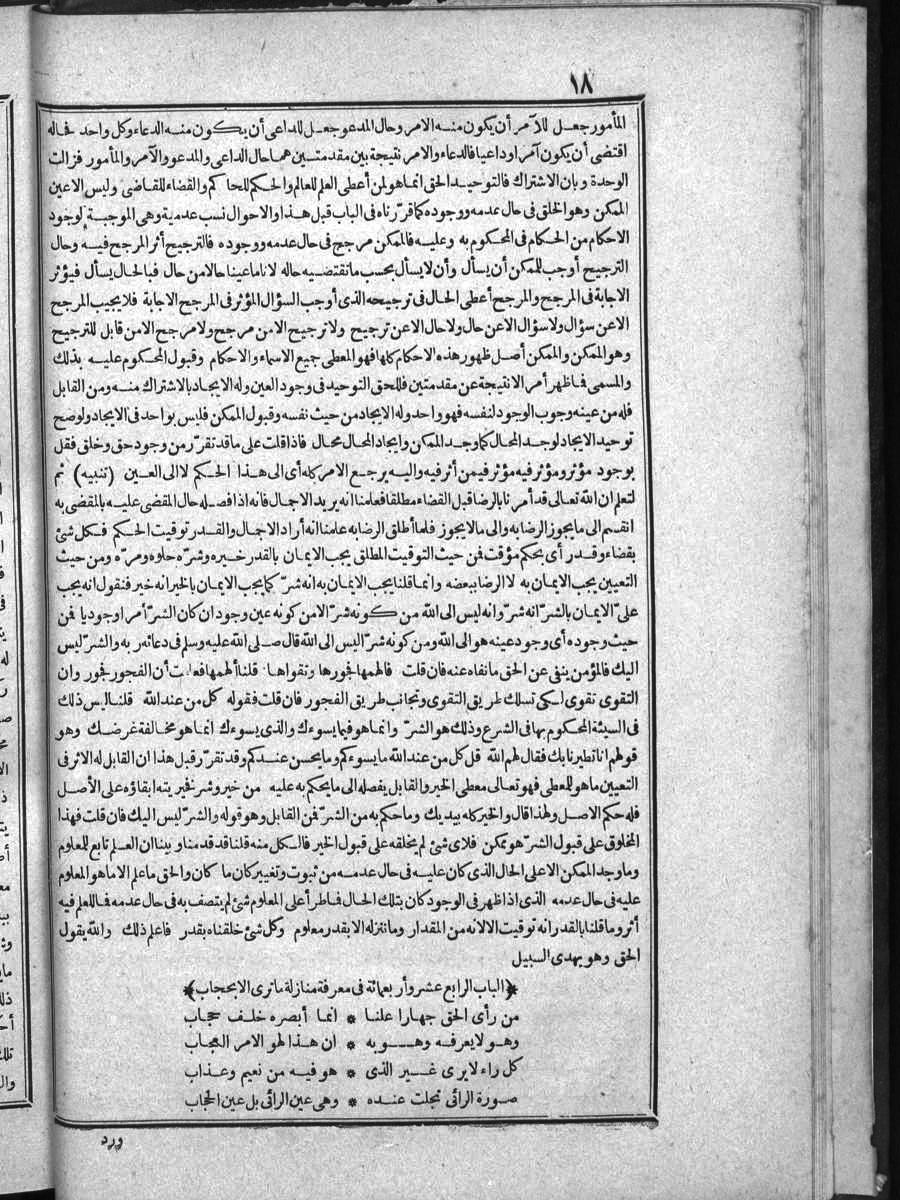 ١٨
المأمور جعل للآمر أن يكون منه الامر وحال المدعو جعل للداعى أن يكون منه الدعاء وكل واحد فحاله
اقتضى أن يكون آمرا وداعيا فالدعاء والامر نتيجة بين مقدمتين هما حال الداعى والمدعو والآمر والمأمور فزالت
الوحدة وبان الاشتراك فالتوحيد الحق انما هو لمن أعطى العلم للعالم والحكم للحاكم والقضاء للقاضى وليس الاعين
الممكن وهو الخلق فى حال عدمه ووجوده كما قررناه فى الباب قبل هذا والاحوال نسب عدمية وهى الموجبة لوجود
الاحكام من الحكام فى المحكوم به وعليه فالممكن مرجح فى حال عدمه ووجوده فالترجيح أثر المرجح فيه وحال
الترجيح أوجب للممكن أن يسأل وأن لا يسأل بحسب ما تقتضيه حاله لانا ما عينا حالا من حال فبالحال يسأل فيؤثر
الاجابة فى المرجح والمرجح أعطى الحال فى ترجيحه الذى أوجب السؤال المؤثر فى المرجح الاجابة فلا يجيب المرجح
الا عن سؤال ولا سؤال الا عن حال ولا حال الا عن ترجيح ولا ترجيح الا من مرجح ولا مرجح الا من قابل للترجيح
وهو الممكن والممكن أصل ظهور هذه الاحكام كلها فهو المعطى جميع الاسماء والاحكام وقبول المحكوم عليه بذلك
والمسمى فما ظهر أمر الا نتيجة عن مقدمتين فللحق التوحيد فى وجود العين وله الايجاد بالاشتراك منه ومن القابل
فله من عينه وجوب الوجود لنفسه فهو واحد وله الايجاد من حيث نفسه وقبول الممكن فليس بواحد فى الايجاد ولو صح
توحيد الايجاد لوجد المحال كما وجد الممكن وايجاد المحال محال فاذا قلت على ما قد تقرر من وجود حق وخلق فقل
بوجود مؤثر ومؤثر فيه مؤثر فيمن أثر فيه واليه يرجع الامر كله أى الى هذا الحكم لا الى العين (تنبيه) ثم
لتعلم ان الله تعالى قد أمرنا بالرضا قبل القضاء مطلقا فعلمنا انه يريد الاجمال فانه اذا فصله حال المقضى عليه بالمقضى به
انقسم الى ما يجوز الرضا به والى ما لا يجوز فلما أطلق الرضا به علمنا انه أراد الاجمال والقدر توقيت الحكم فكل شئ
بقضاء وقدر أى بحكم مؤقت فمن حيث التوقيت المطلق يجب الايمان بالقدر خيره وشره حلوه ومره ومن حيث
التعيين يجب الايمان به لا الرضا ببعضه وانما قلنا يجب الايمان به انه شر كما يجب الايمان بالخير انه خير فنقول انه يجب
على الايمان بالشر انه شر وانه ليس الى الله من كونه شرا لا من كونه عين وجود ان كان الشر أمرا وجوديا فمن
حيث وجوده أى وجود عينه هو الى الله ومن كونه شرا ليس الى الله قال صلى الله عليه وسلم فى دعائه ربه والشر ليس
اليك فالمؤمن ينفى عن الحق ما نفاه عنه فان قلت فألهمها فجورها وتقواها قلنا ألهمها فعلمت أن الفجور فجور وان
التقوى تقوى لكى تسلك طريق التقوى وتجانب طريق الفجور فان قلت فقوله كل من عند الله قلنا ليس ذلك
فى السيئة المحكوم بها فى الشرع وذلك هو الشر وانما هو فيما يسوءك والذى يسوءك انما هو مخالفة غرضك وهو
قولهم انا تطيرنا بك فقال لهم الله قل كل من عند الله ما يسوءكم وما يحسن عندكم وقد تقرر قبل هذا ان القابل له الاثر فى
التعيين ما هو للمعطى فهو تعالى معطى الخير والقابل يفصله الى ما يحكم به عليه من خير وشر فخيريته ابقاؤه على الأصل
فله حكم الاصل ولهذا قال والخير كله بيديك وما حكم به من الشر فمن القابل وهو قوله والشر ليس اليك فان قلت فهذا
المخلوق على قبول الشر هو ممكن فلاى شئ لم يخلقه على قبول الخير فالكل منه قلنا قد قدمنا وبينا ان العلم تابع للمعلوم
وما وجد الممكن الا على الحال الذى كان عليه فى حال عدمه من ثبوت وتغيير كان ما كان والحق ما علم الا ما هو المعلوم
عليه فى حال عدمه الذى اذا ظهر فى الوجود كان بتلك الحال فما طرأ على المعلوم شئ لم يتصف به فى حال عدمه فما للعلم فيه
أثر وما قلنا بالقدر انه توقيت الا لانه من المقدار وما ننزله الا بقدر معلوم وكل شئ خلقناه بقدر فاعلم ذلك والله يقول
الحق وهو يهدى السبيل
﴿الباب الرابع عشر وأربعمائة فى معرفة منازلة ما ترى الا بحجاب﴾
من رأى الحق جهارا علنا * انما أبصره خلف حجاب
وهو لا يعرفه وهو به * ان هذا لهو الامر العجاب
كل راء لا يرى غير الذى * هو فيه من نعيم وعذاب
صورة الرائى تجلت عنده * وهى عين الرائى بل عين الحجاب
ورد